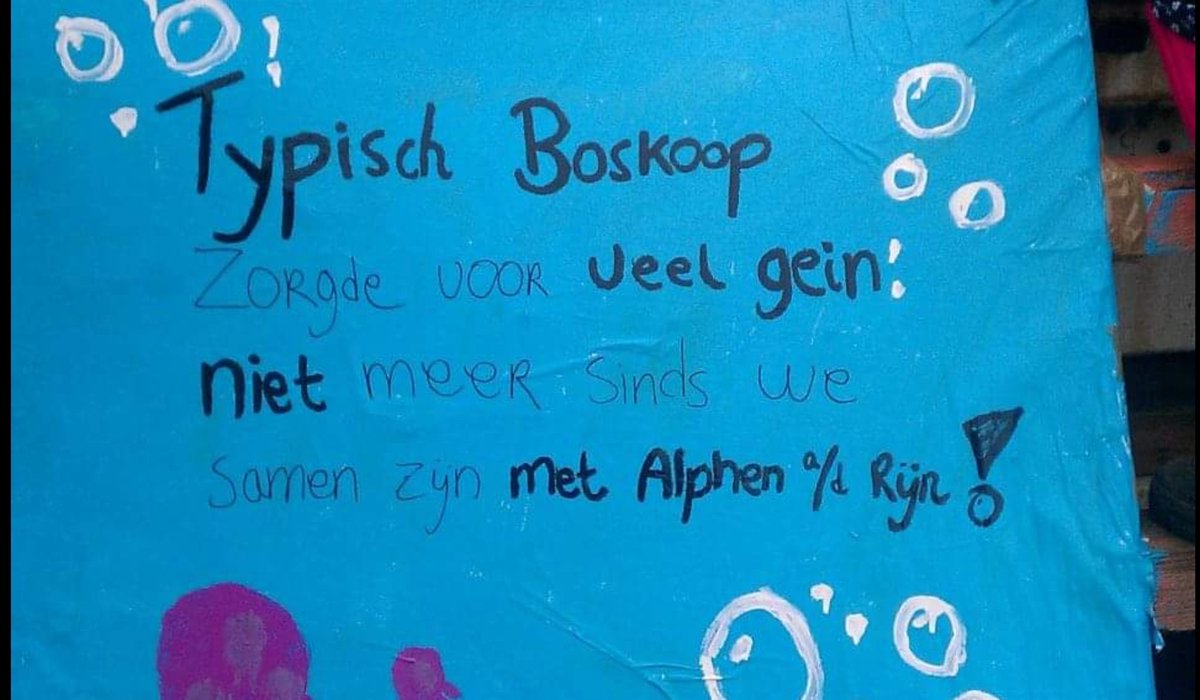 Typisch Boskoop
Zorgde voor veel gein!
niet meer sinds we
samen zijn met Alphen a/d Rijn!